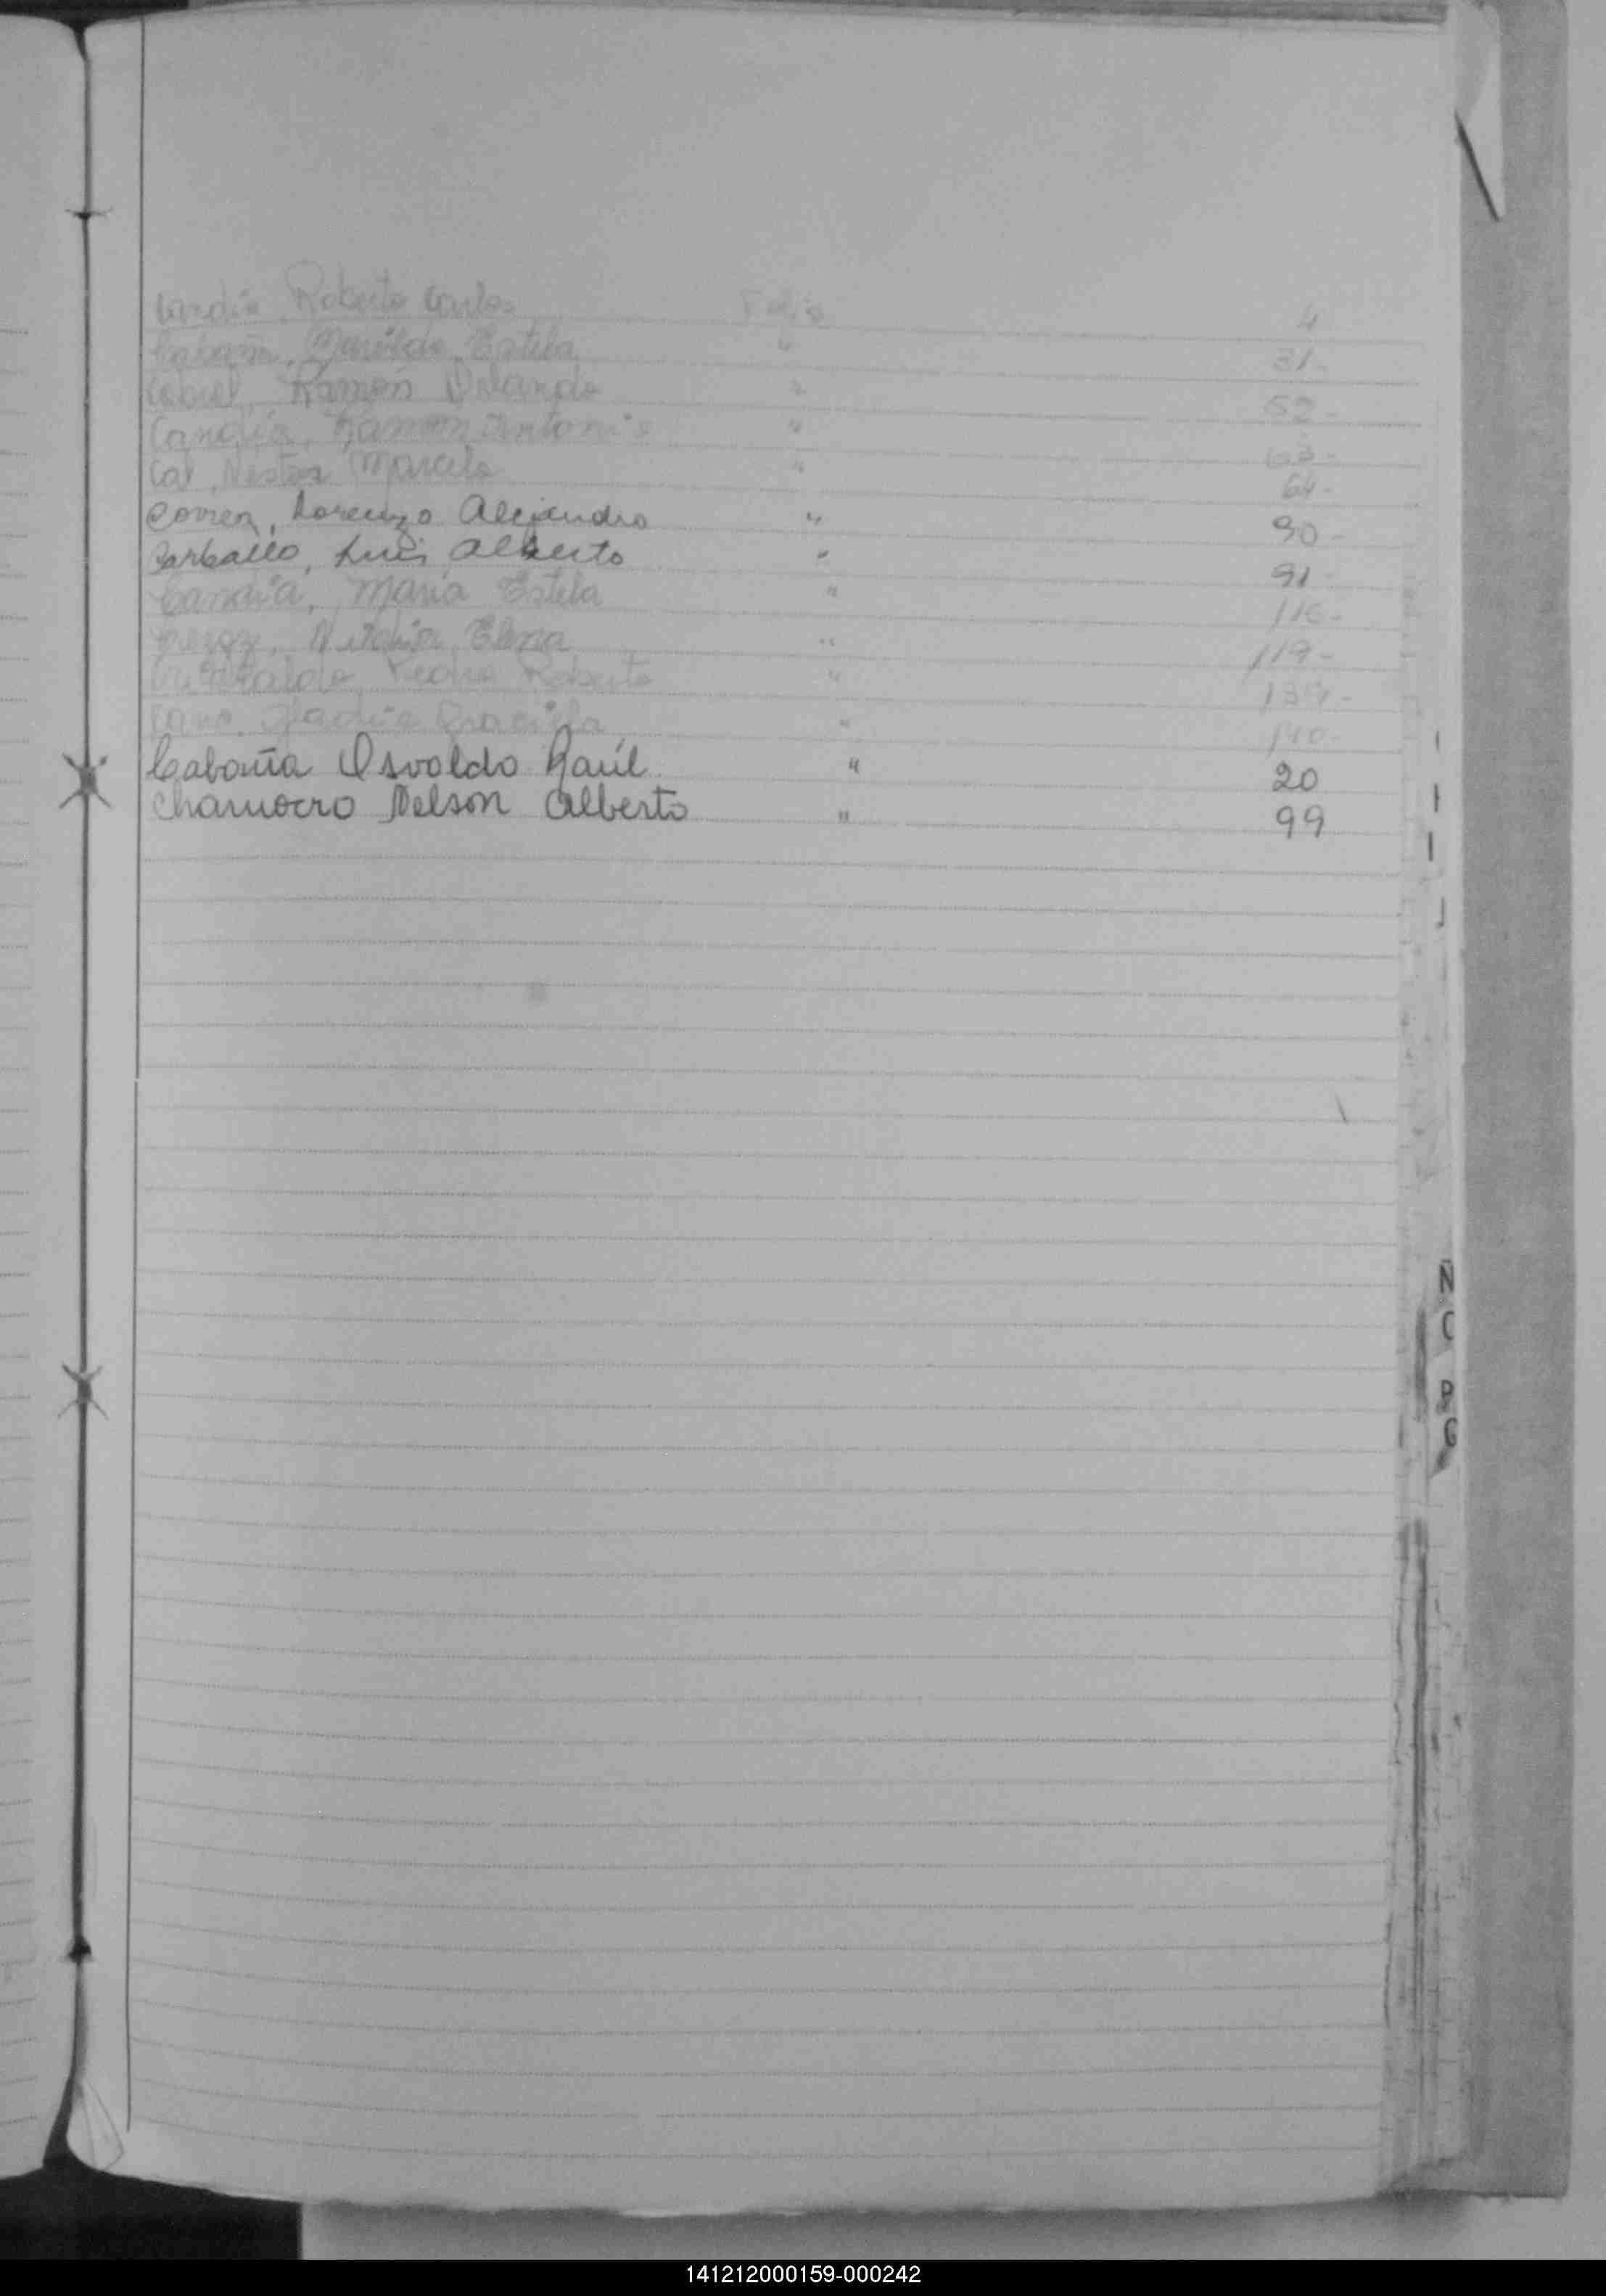 Candia, Roberto Carlos Folio 4
Cabaña, Estela " 31-
Ramón Orlando " 52-
Candia, Ramon Antonio " 63-
Cal, Nestor Marcelo " 64-
Correa, Lorenzo Alejandro " 90-
Carballo, Luis Alberto " 91-
Candia, Maria Estela " 116-
Elena " 119-
Pedro Roberto " 139-
Cano, Graciela " 140-
Cabaña Osvaldo Raúl " 20
Chamorro Nelson Alberto " 99
Ñ
P
G
141212000159-000242